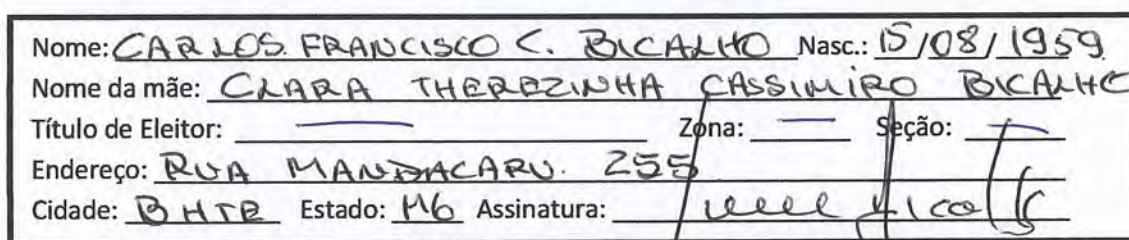 Nome: CARLOS. FRANCISCO C. BICALHO Nasc.: 15/08/1959
Nome da mãe: CLARA THEREZINHA CASSIMIRO BICALHO
Título de Eleitor: — Zona: — Seção: —
Endereço: RUA MANDACARU. 255
Cidade: BHTE Estado: MG Assinatura: